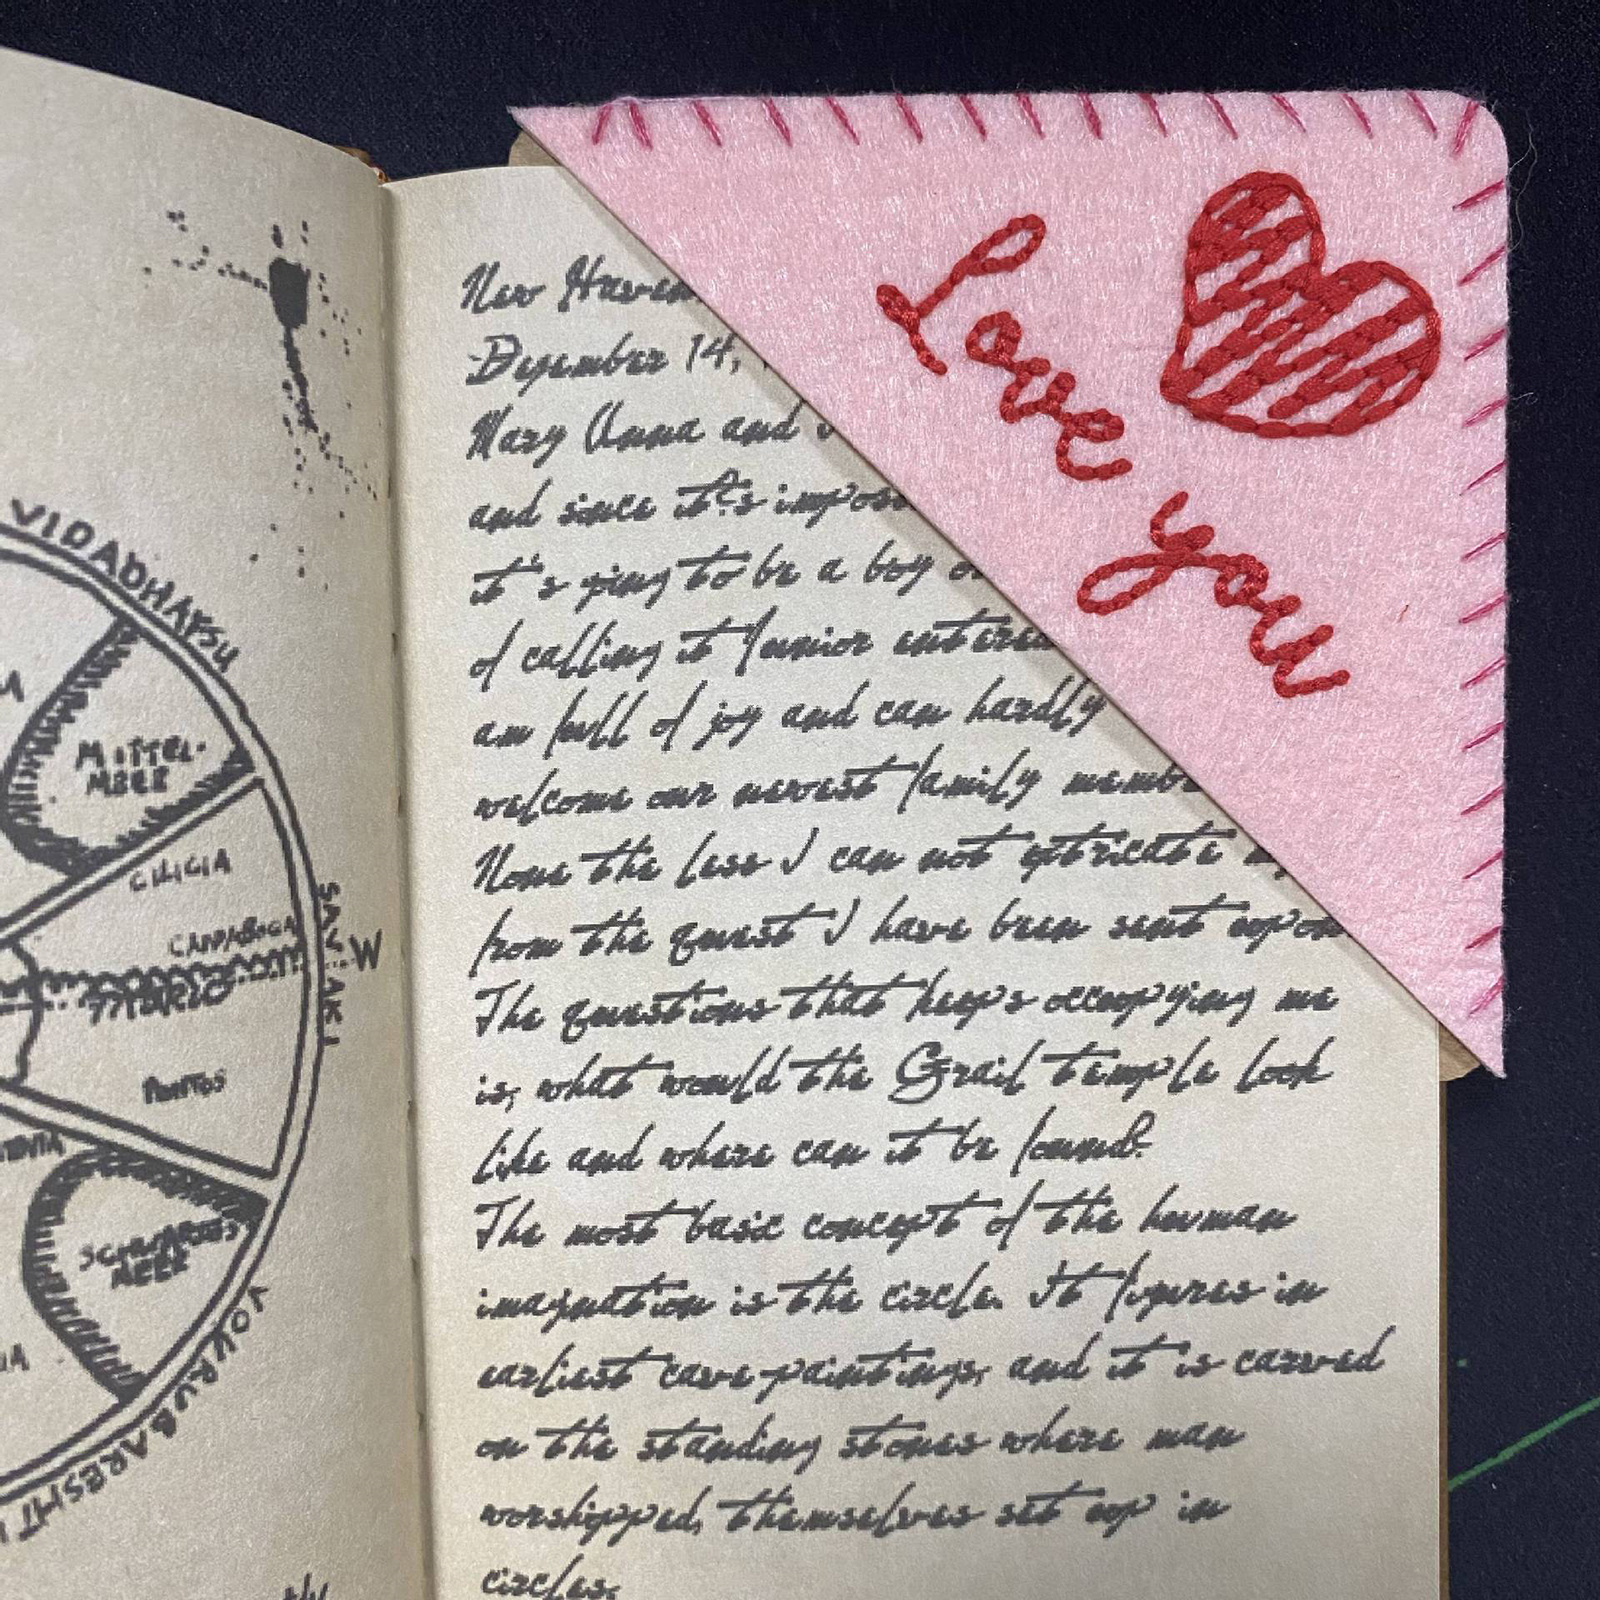 VIDADHAFSU
MITTEL-
MEER
CILICIA
SAVLAKI
W
PONTOS
MEER
VOURUBARESHTI
New Haven
December 14,
Mary Anna and
and since it's
it's going to be a boy
of calling it Junior
am full of joy and can hardly
welcome our newest family
None the less I can not extricate
from the quest I have been sent upon
The questions that keeps occupying me
is, what would the Grail temple look
like and where can it be found?
The most basic concept of the human
imagination is the circle. It figures in
earliest cave-paintings, and it is carved
on the standing stones where man
worshipped, themselves set up in
circles.
Love you